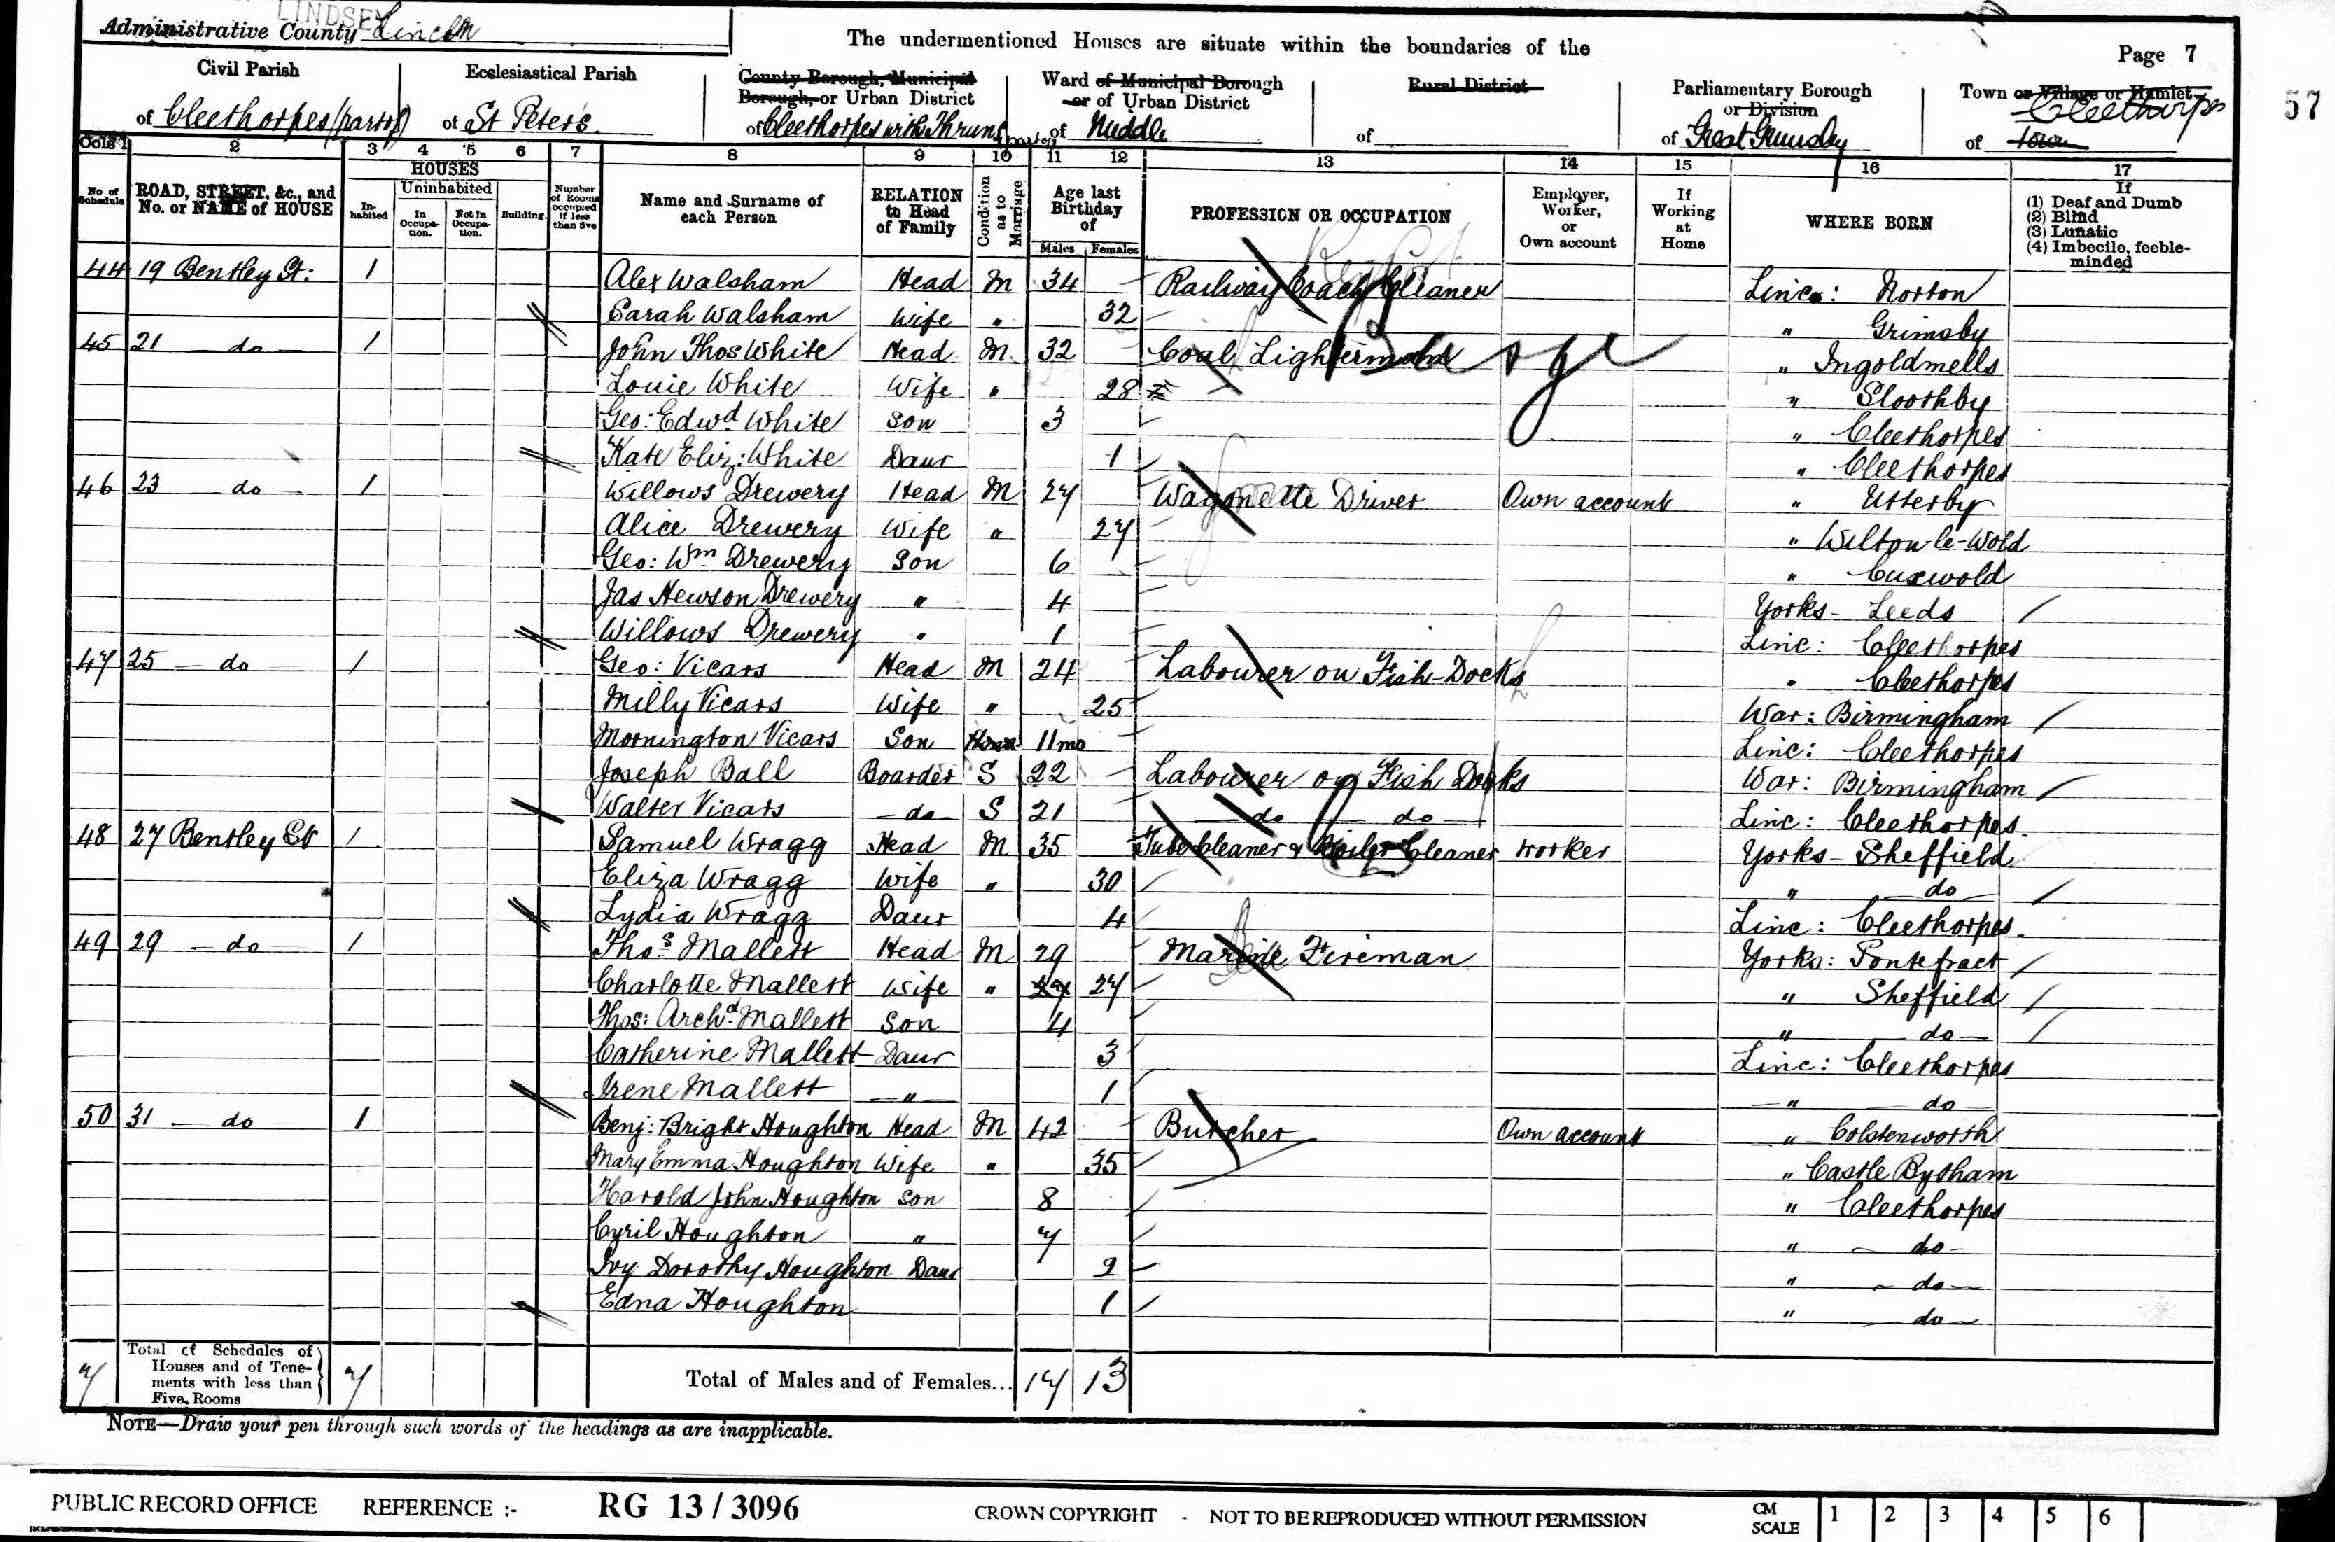 LINDSEY
Administrative County Lincoln
The undermentioned Houses are situate within the boundaries of the
Page 7
57
Civil Parish
of Cleethorpes (part of)
Ecclesiastical Parish
of St Peter's
County Borough, Municipal Borough, or Urban District
of Cleethorpes with Thruns
Ward of Municipal Borough or of Urban District
of Middle
Rural District
of
Parliamentary Borough or Division
of Great Grimsby
Town or Village or Hamlet
of Cleethorpes
Cols 1 2 3 4 5 6 7 8 9 10 11 12 13 14 15 16 17
No. of Schedule
ROAD, STREET, &c., and No. or NAME of HOUSE
HOUSES
Inhabited
Uninhabited
In Occupation.
Not in Occupation.
Building
Number of Rooms occupied if less than five
Name and Surname of each Person
RELATION to Head of Family
Condition as to Marriage
Age last Birthday of
Males Females
PROFESSION OR OCCUPATION
Employer, Worker, or Own account
If Working at Home
WHERE BORN
If
(1) Deaf and Dumb
(2) Blind
(3) Lunatic
(4) Imbecile, feeble-minded
44 19 Bentley St: 1 Alex Walsham Head M 34 Railway Coach Cleaner Linc: Norton
Sarah Walsham Wife " 32 " Grimsby
45 21 do 1 John Thos White Head M 32 Coal Lighterman Barge " Ingoldmells
Louie White Wife " 28 " Sloothby
Geo: Edwd White Son 3 " Cleethorpes
Kate Eliz: White Daur 1 " Cleethorpes
46 23 do 1 Willows Drewery Head M 27 Wagonette Driver Own account " Utterby
Alice Drewery Wife " 27 " Welton-le-Wold
Geo: Wm Drewery Son 6 " Cuxwold
Jas Hewson Drewery " 4 Yorks - Leeds
Willows Drewery " 1 Linc: Cleethorpes
47 25 do 1 Geo: Vicars Head M 24 Labourer on Fish-Docks " Cleethorpes
Milly Vicars Wife " 25 War: Birmingham
Mornington Vicars Son 11mo Linc: Cleethorpes
Joseph Ball Boarder S 22 Labourer on Fish Docks War: Birmingham
Walter Vicars do S 21 do do Linc: Cleethorpes.
48 27 Bentley St 1 Samuel Wragg Head M 35 Tube Cleaner & Boiler Cleaner Worker Yorks - Sheffield
Eliza Wragg Wife " 30 " do
Lydia Wragg Daur 4 Linc: Cleethorpes.
49 29 do 1 Thos. Mallett Head M 29 Marine Fireman Yorks: Pontefract
Charlotte Mallett Wife " 27 27 " Sheffield
Thos: Archd Mallett Son 4 " do
Catherine Mallett Daur 3 Linc: Cleethorpes
Irene Mallett " 1 " do
50 31 do 1 Benj: Bright Houghton Head M 42 Butcher Own account " Colsterworth
Mary Emma Houghton Wife " 35 " Castle Bytham
Harold John Houghton Son 8 " Cleethorpes
Cyril Houghton " 7 " do
Ivy Dorothy Houghton Daur 2 " do
Edna Houghton 1 " do
7 Total of Schedules of Houses and of Tenements with less than Five Rooms 7 Total of Males and of Females... 17 13
NOTE—Draw your pen through such words of the headings as are inapplicable.
PUBLIC RECORD OFFICE REFERENCE :- RG 13 / 3096 CROWN COPYRIGHT - NOT TO BE REPRODUCED WITHOUT PERMISSION CM SCALE 1 2 3 4 5 6